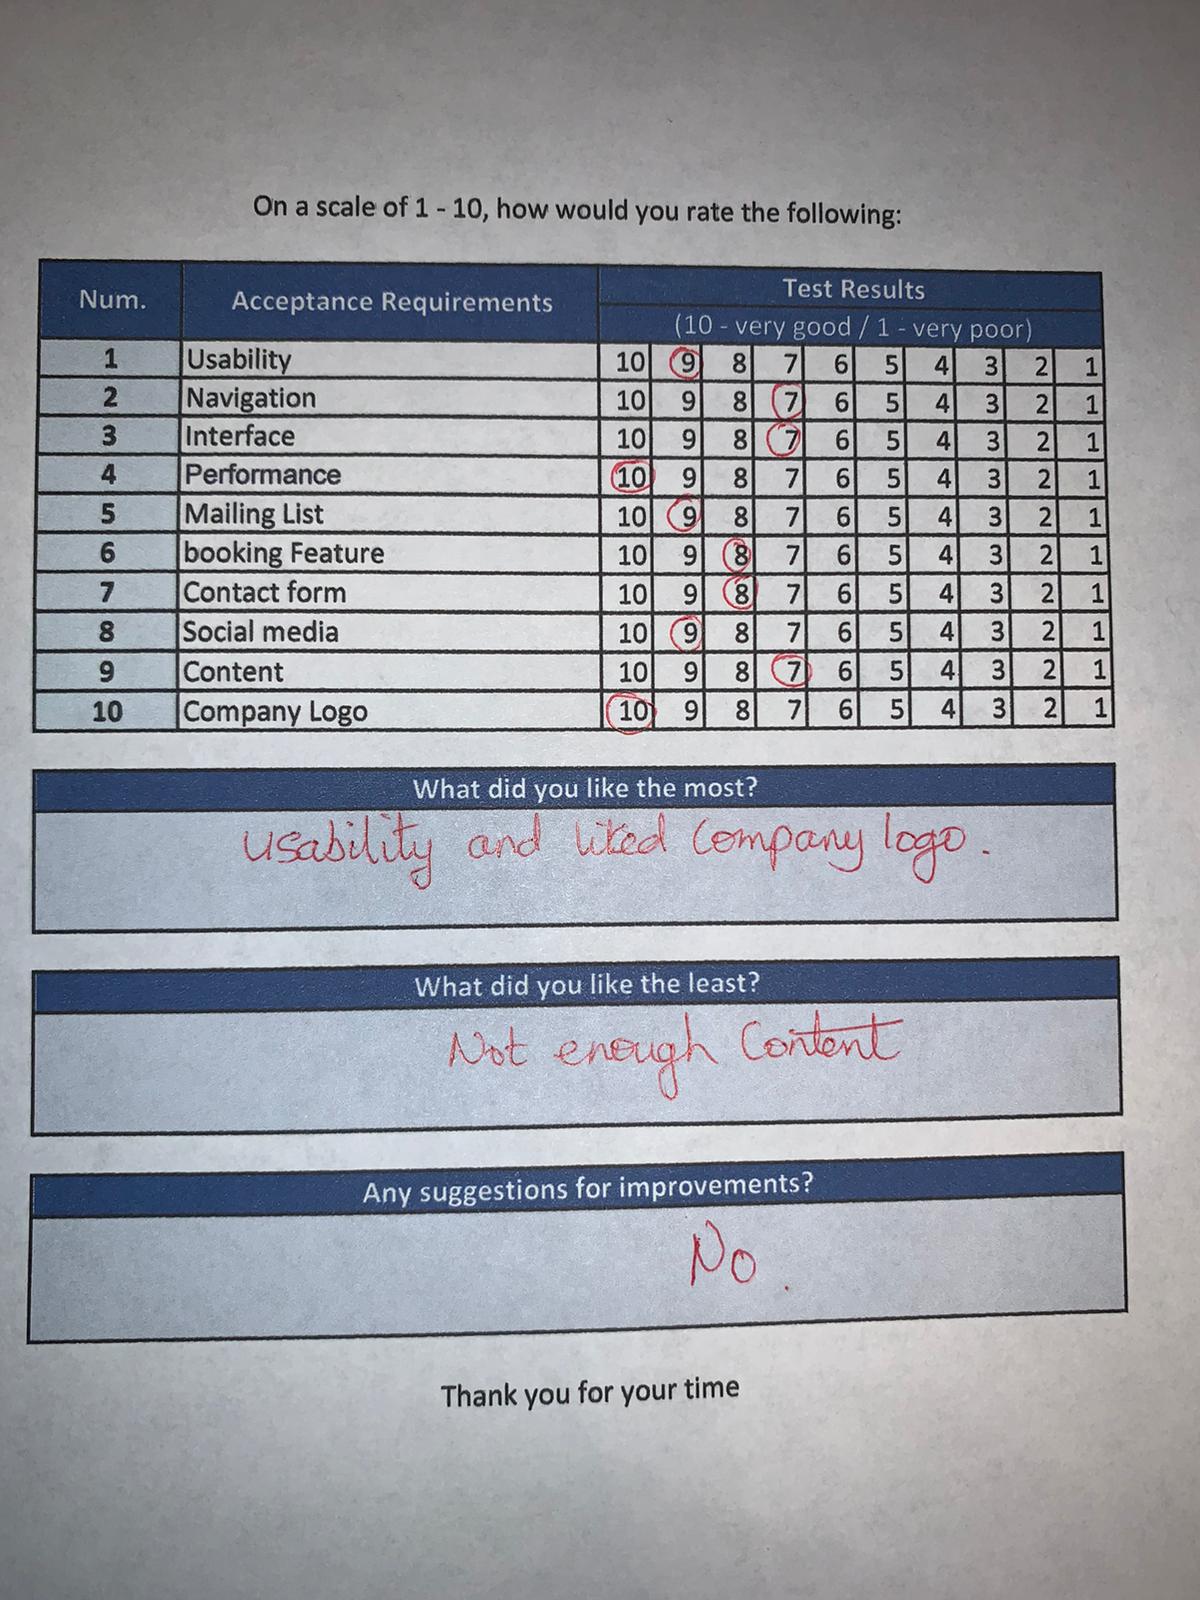 On a scale of 1 - 10, how would you rate the following:
Num. Acceptance Requirements Test Results
(10 - very good / 1 - very poor)
1 Usability 10 9 8 7 6 5 4 3 2 1
2 Navigation 10 9 8 7 6 5 4 3 2 1
3 Interface 10 9 8 7 6 5 4 3 2 1
4 Performance 10 9 8 7 6 5 4 3 2 1
5 Mailing List 10 9 8 7 6 5 4 3 2 1
6 booking Feature 10 9 8 7 6 5 4 3 2 1
7 Contact form 10 9 8 7 6 5 4 3 2 1
8 Social media 10 9 8 7 6 5 4 3 2 1
9 Content 10 9 8 7 6 5 4 3 2 1
10 Company Logo 10 9 8 7 6 5 4 3 2 1
What did you like the most?
Usability and liked Company logo.
What did you like the least?
Not enough Content
Any suggestions for improvements?
No.
Thank you for your time